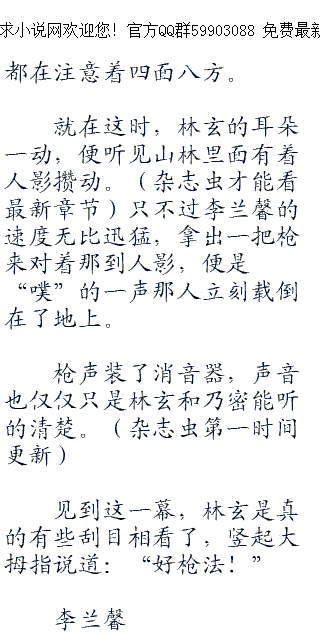 求小说网欢迎您！官方QQ群59903088 免费最新
都在注意着四面八方。
就在这时，林玄的耳朵
一动，便听见山林里面有着
人影攒动。（杂志虫才能看
最新章节）只不过李兰馨的
速度无比迅猛，拿出一把枪
来对着那到人影，便是
“噗”的一声那人立刻载倒
在了地上。
枪声装了消音器，声音
也仅仅只是林玄和乃密能听
的清楚。（杂志虫第一时间
更新）
见到这一幕，林玄是真
的有些刮目相看了，竖起大
拇指说道：“好枪法！”
李兰馨